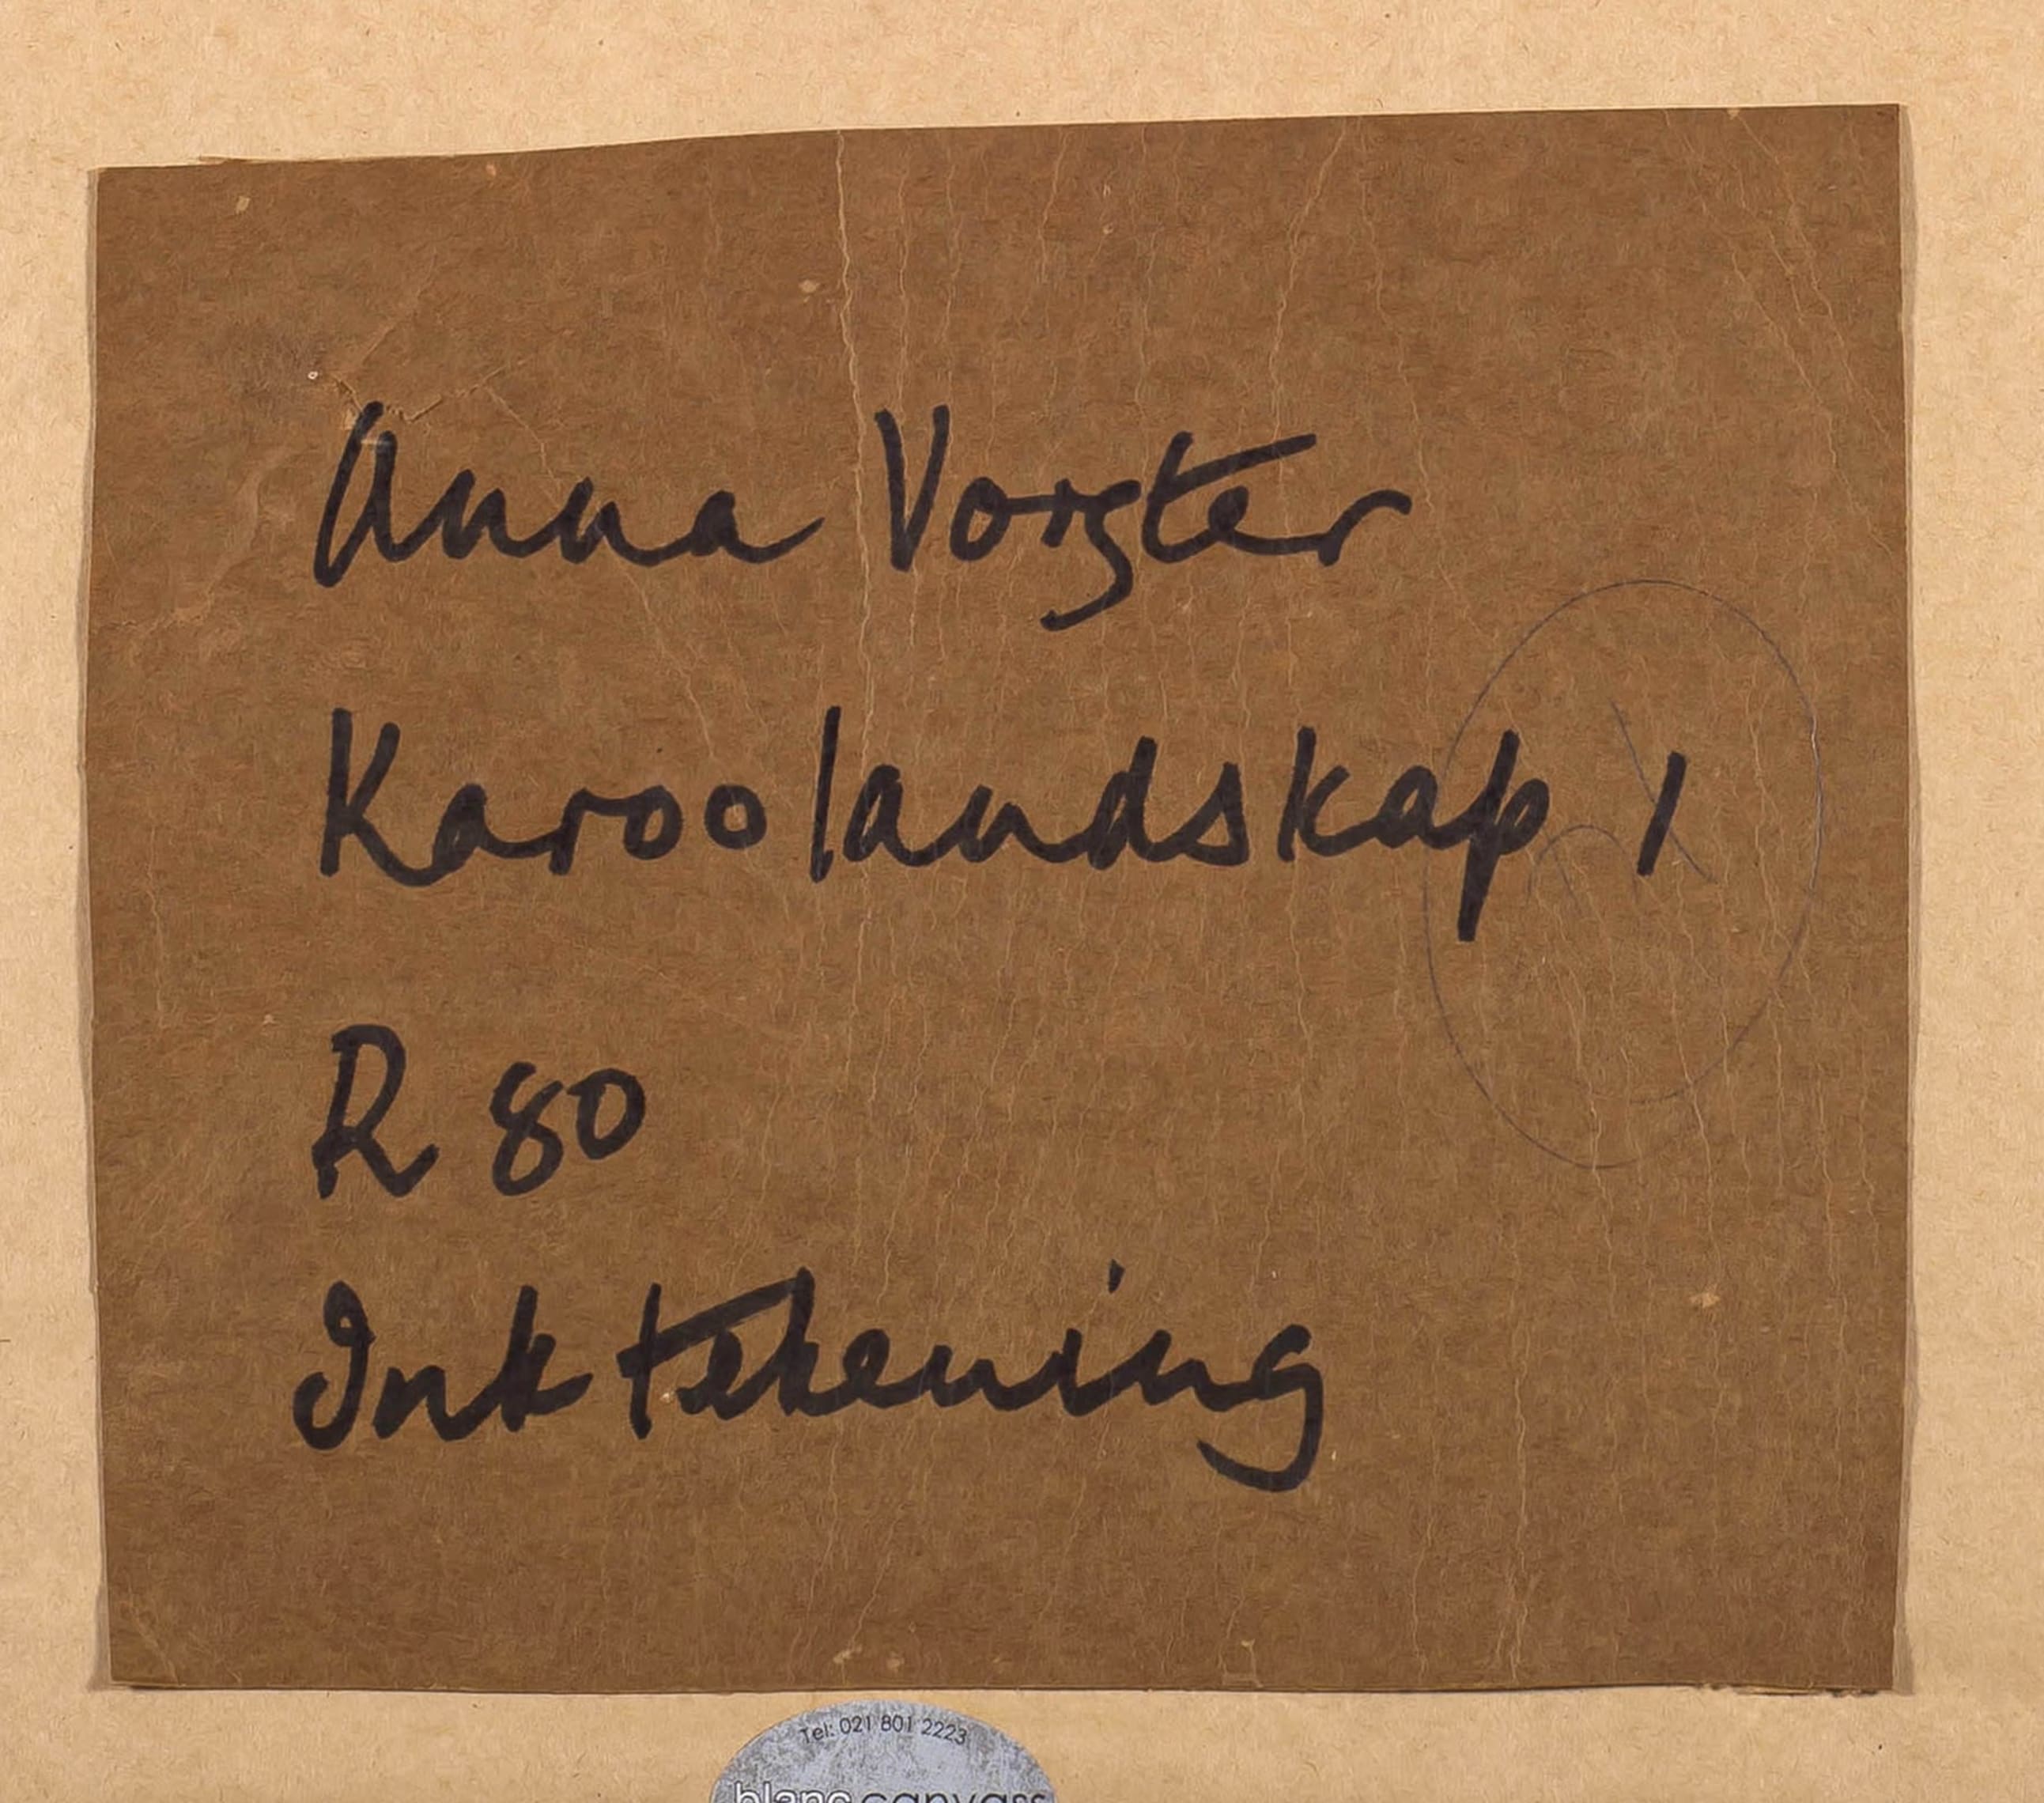 Anna Vorster
Karoolandskap 1
R 80
Ink tekening
Tel: 021 801 2223
blanc canvass